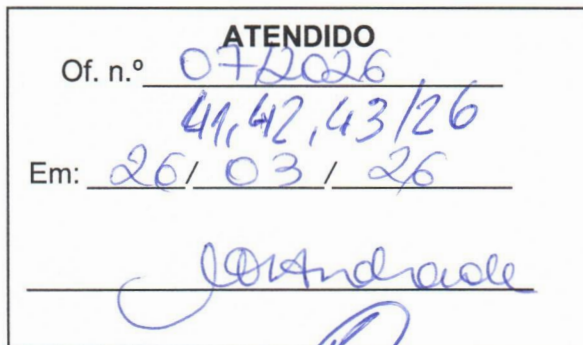 ATENDIDO
Of. n.º 07/2026
41,42,43/26
Em: 26/ 03 / 26